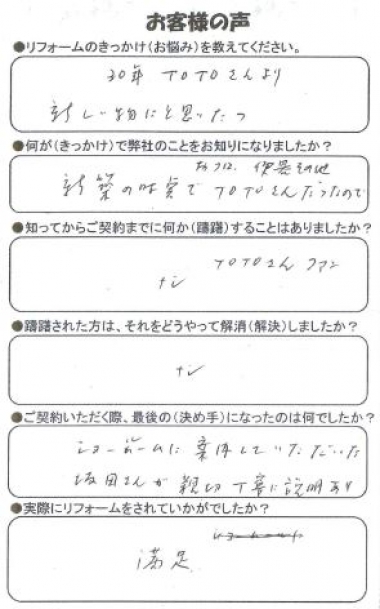 お客様の声
●リフォームのきっかけ(お悩み)を教えてください。
30年 TOTOさんより
新しい物にと思った
●何が(きっかけ)で弊社のことをお知りになりましたか?
伊呂
新築の時 TOTOさんだったので
●知ってからご契約までに何か(躊躇)することはありましたか?
TOTOさん ファン
ナシ
●躊躇された方は、それをどうやって解消(解決)しましたか?
ナシ
●ご契約いただく際、最後の(決め手)になったのは何でしたか?
ショールームに案内していただいた
坂田さんが 親切 丁寧に説明あり
●実際にリフォームをされていかがでしたか?
満足